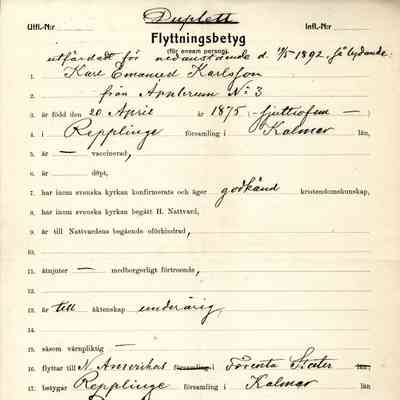 Utfl.-N:r Duplett Infl.-N:r
Flyttningsbetyg
(för ensam person)
utfärdadt för nedanstående d. 11/5 1892, så lydande:
1. Karl Emanuel Karlsson
2. från Arnbrun No 3
3. är född den 20 April år 1875 (- sjuttiofem -)
4. i Repplinge församling i Kalmar län,
5. är — vaccinerad,
6. är döpt,
7. har inom svenska kyrkan konfirmerats och äger godkänd kristendomskunskap,
8. har inom svenska kyrkan begått H. Nattvard,
9. är till Nattvardens begående oförhindrad,
10.
11. åtnjuter — medborgerligt förtroende,
12.
13. är till äktenskap underårig,
14.
15. såsom värnpliktig —
16. flyttar till N. Amerikas församling i Förenta Stater län,
17. betygar Repplinge församling i Kalmar län